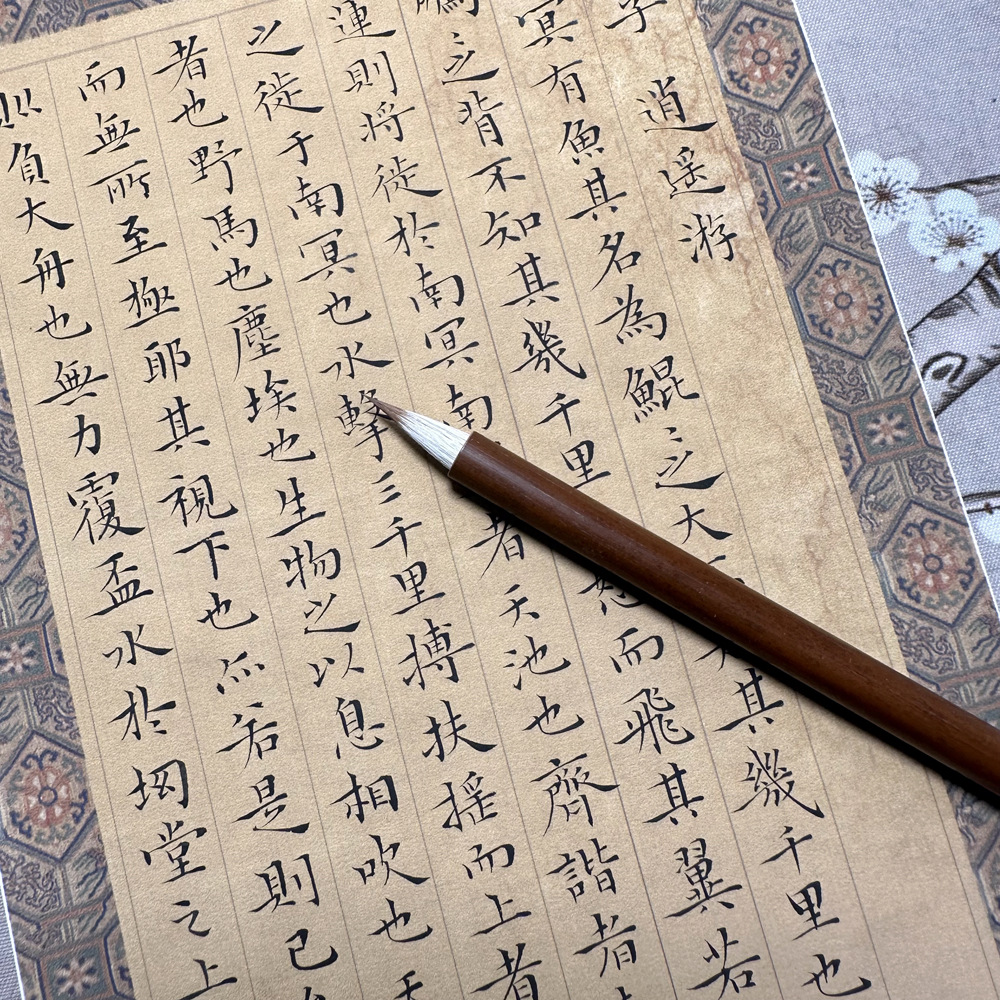 子 逍遥游
冥有魚其名為鯤〻之大不其幾千里也
之背不知其幾千里怒而飛其翼若
連則將徙於南冥南者天池也齊諧者
之徙于南冥也水擊三千里搏扶摇而上者
者也野馬也塵埃也生物之以息相吹也天
而無所至極耶其視下也亦若是則已
負大舟也無力覆盃水於坳堂之上